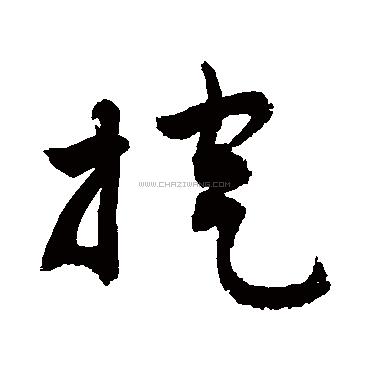 挖
WWW.CHAZIWANG.COM